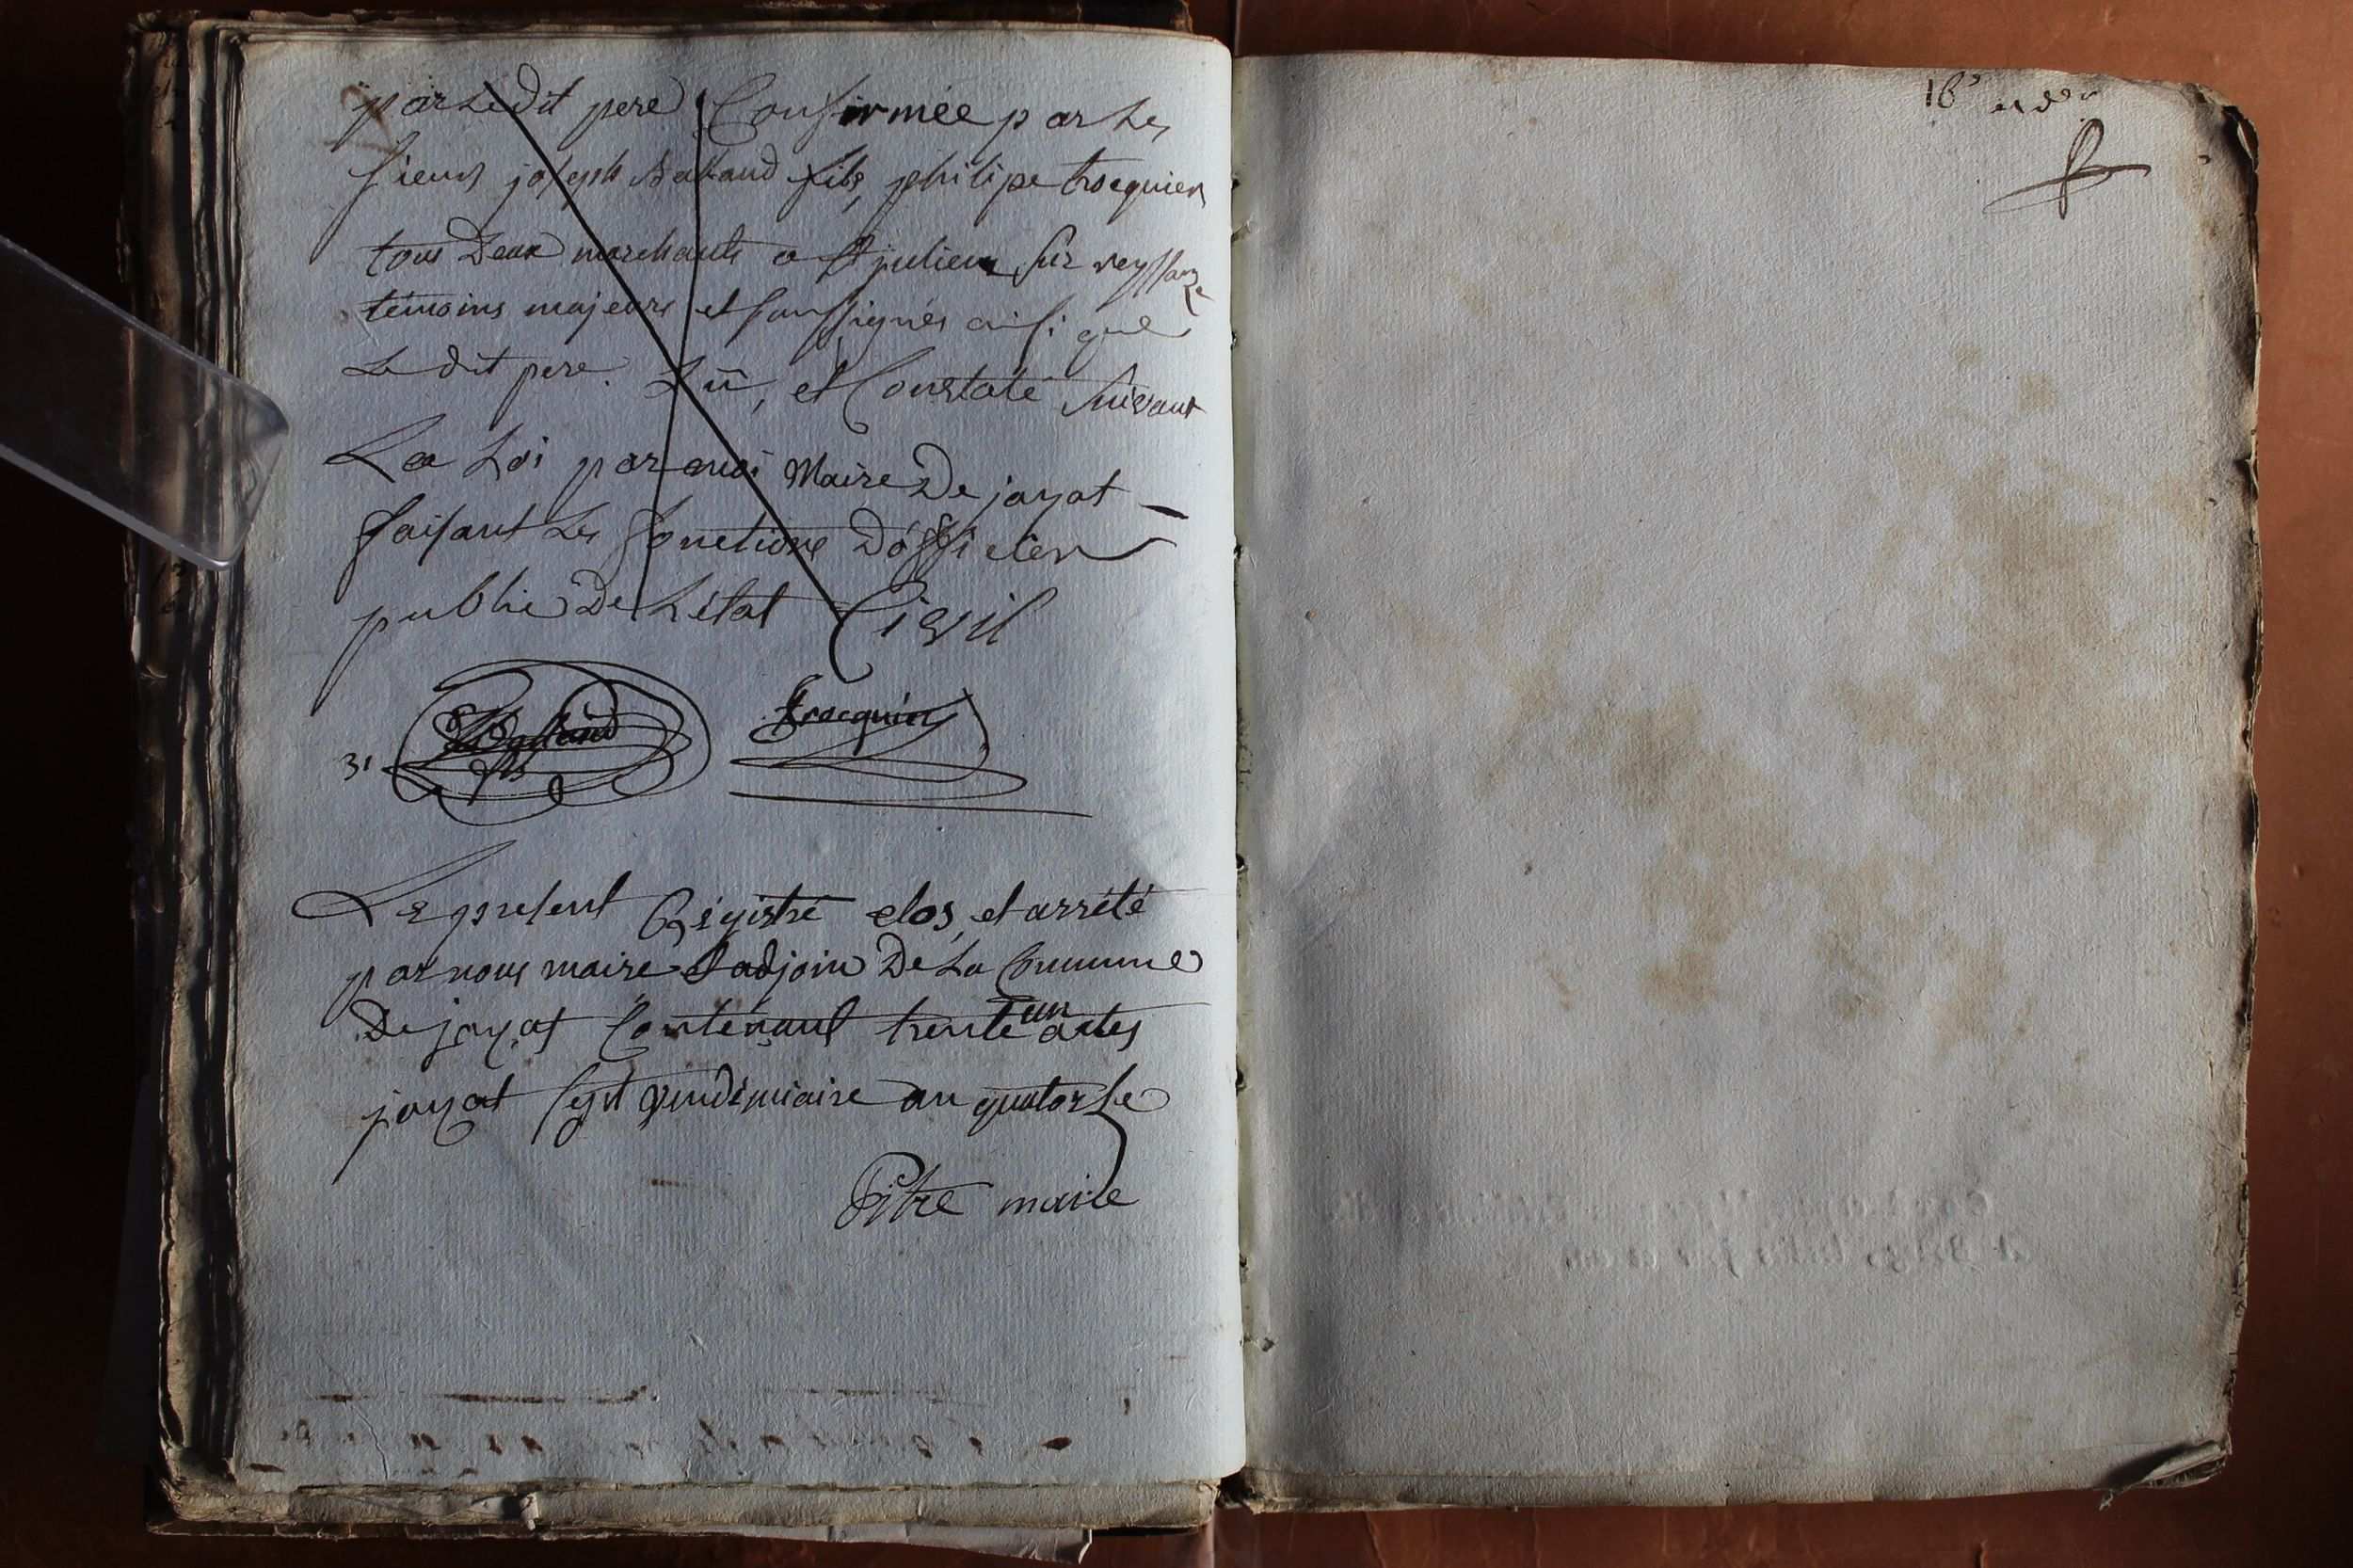 par Le Dit pere Confirmée par Les
sieurs joseph Balland fils, philipe trocquier
tous Deux marchants a St julien sur reyssouze
témoins majeurs et soussignés ainsi que
Le dit pere. Lû, et Constaté suivant
La Loi par moi Maire De jayat
faisant Les fonctions D'officier
public De L'état Civil
Balland
fils
trocquier
31
Le present Régistre clos, et arrété
par nous maire et adjoin De La Commune
De jayat Contenant trente un actes
jayat sept vendémiaire an quatorse
Pitre maire
18e et der